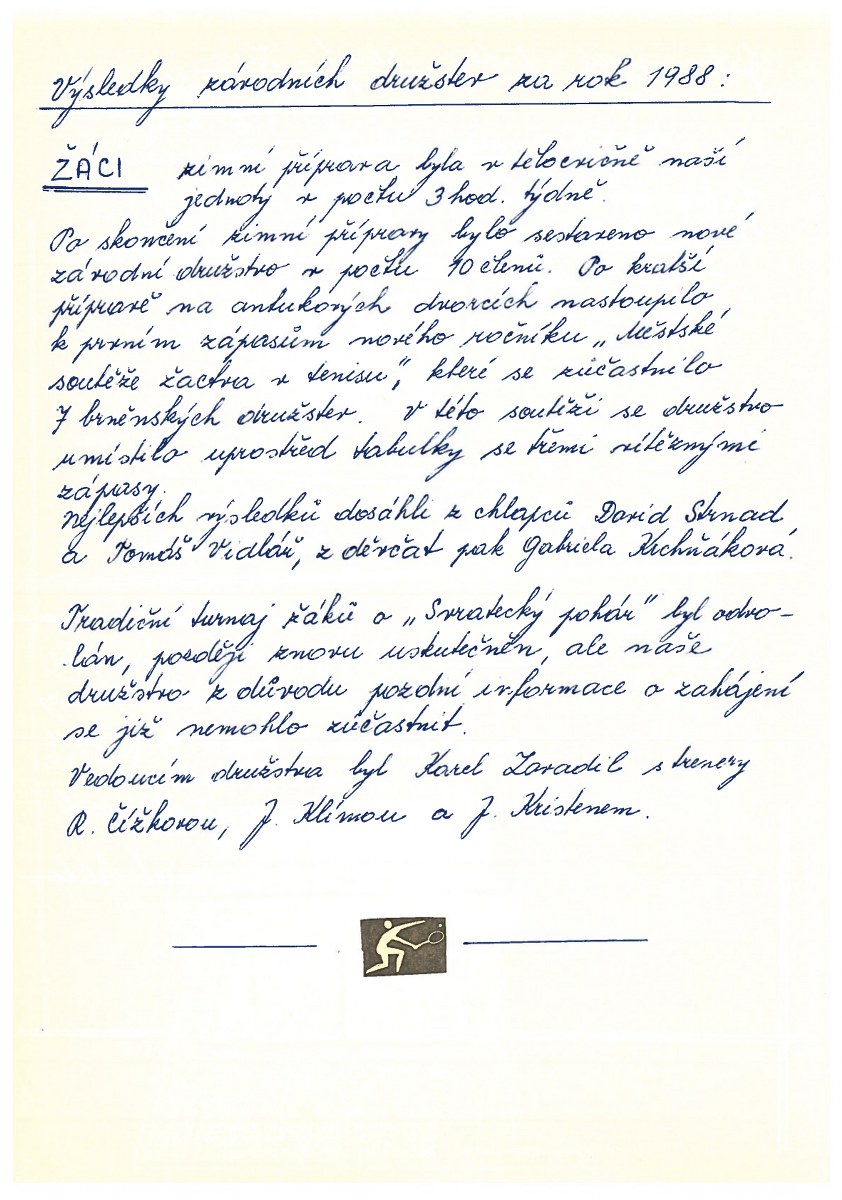 Výsledky závodních družstev za rok 1988:
ŽÁCI zimní příprava byla v tělocvičně naší
jednoty v počtu 3 hod. týdně.
Po skončení zimní přípravy bylo sestaveno nové
závodní družstvo v počtu 10 členů. Po kratší
přípravě na antukových dvorcích nastoupilo
k prvním zápasům nového ročníku „Městské
soutěže žactva v tenisu", které se zúčastnilo
7 brněnských družstev. V této soutěži se družstvo
umístilo uprostřed tabulky se třemi vítěznými
zápasy.
Nejlepších výsledků dosáhli z chlapců David Strnad
a Tomáš Vidlář, z děvčat pak Gabriela Krchňáková.
Tradiční turnaj žáků o „Svratecký pohár" byl odvo-
lán, později znovu uskutečněn, ale naše
družstvo z důvodu pozdní informace o zahájení
se již nemohlo zúčastnit.
Vedoucím družstva byl Karel Zavadil s trenery
R. Čížkovou, J. Klímou a J. Kristenem.